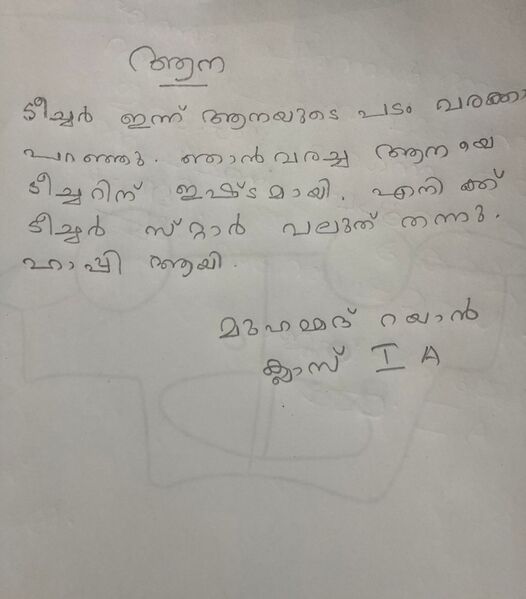 ആന
ടീച്ചർ ഇന്ന് ആനയുടെ പടം വരക്കാ
പറഞ്ഞു. ഞാൻ വരച്ച ആനയെ
ടീച്ചറിന് ഇഷ്ടമായി. എനിക്ക്
ടീച്ചർ സ്റ്റാർ വലുത് തന്നു.
ഹാപ്പി ആയി.
മുഹമ്മദ് റയാൻ
ക്ലാസ് I A